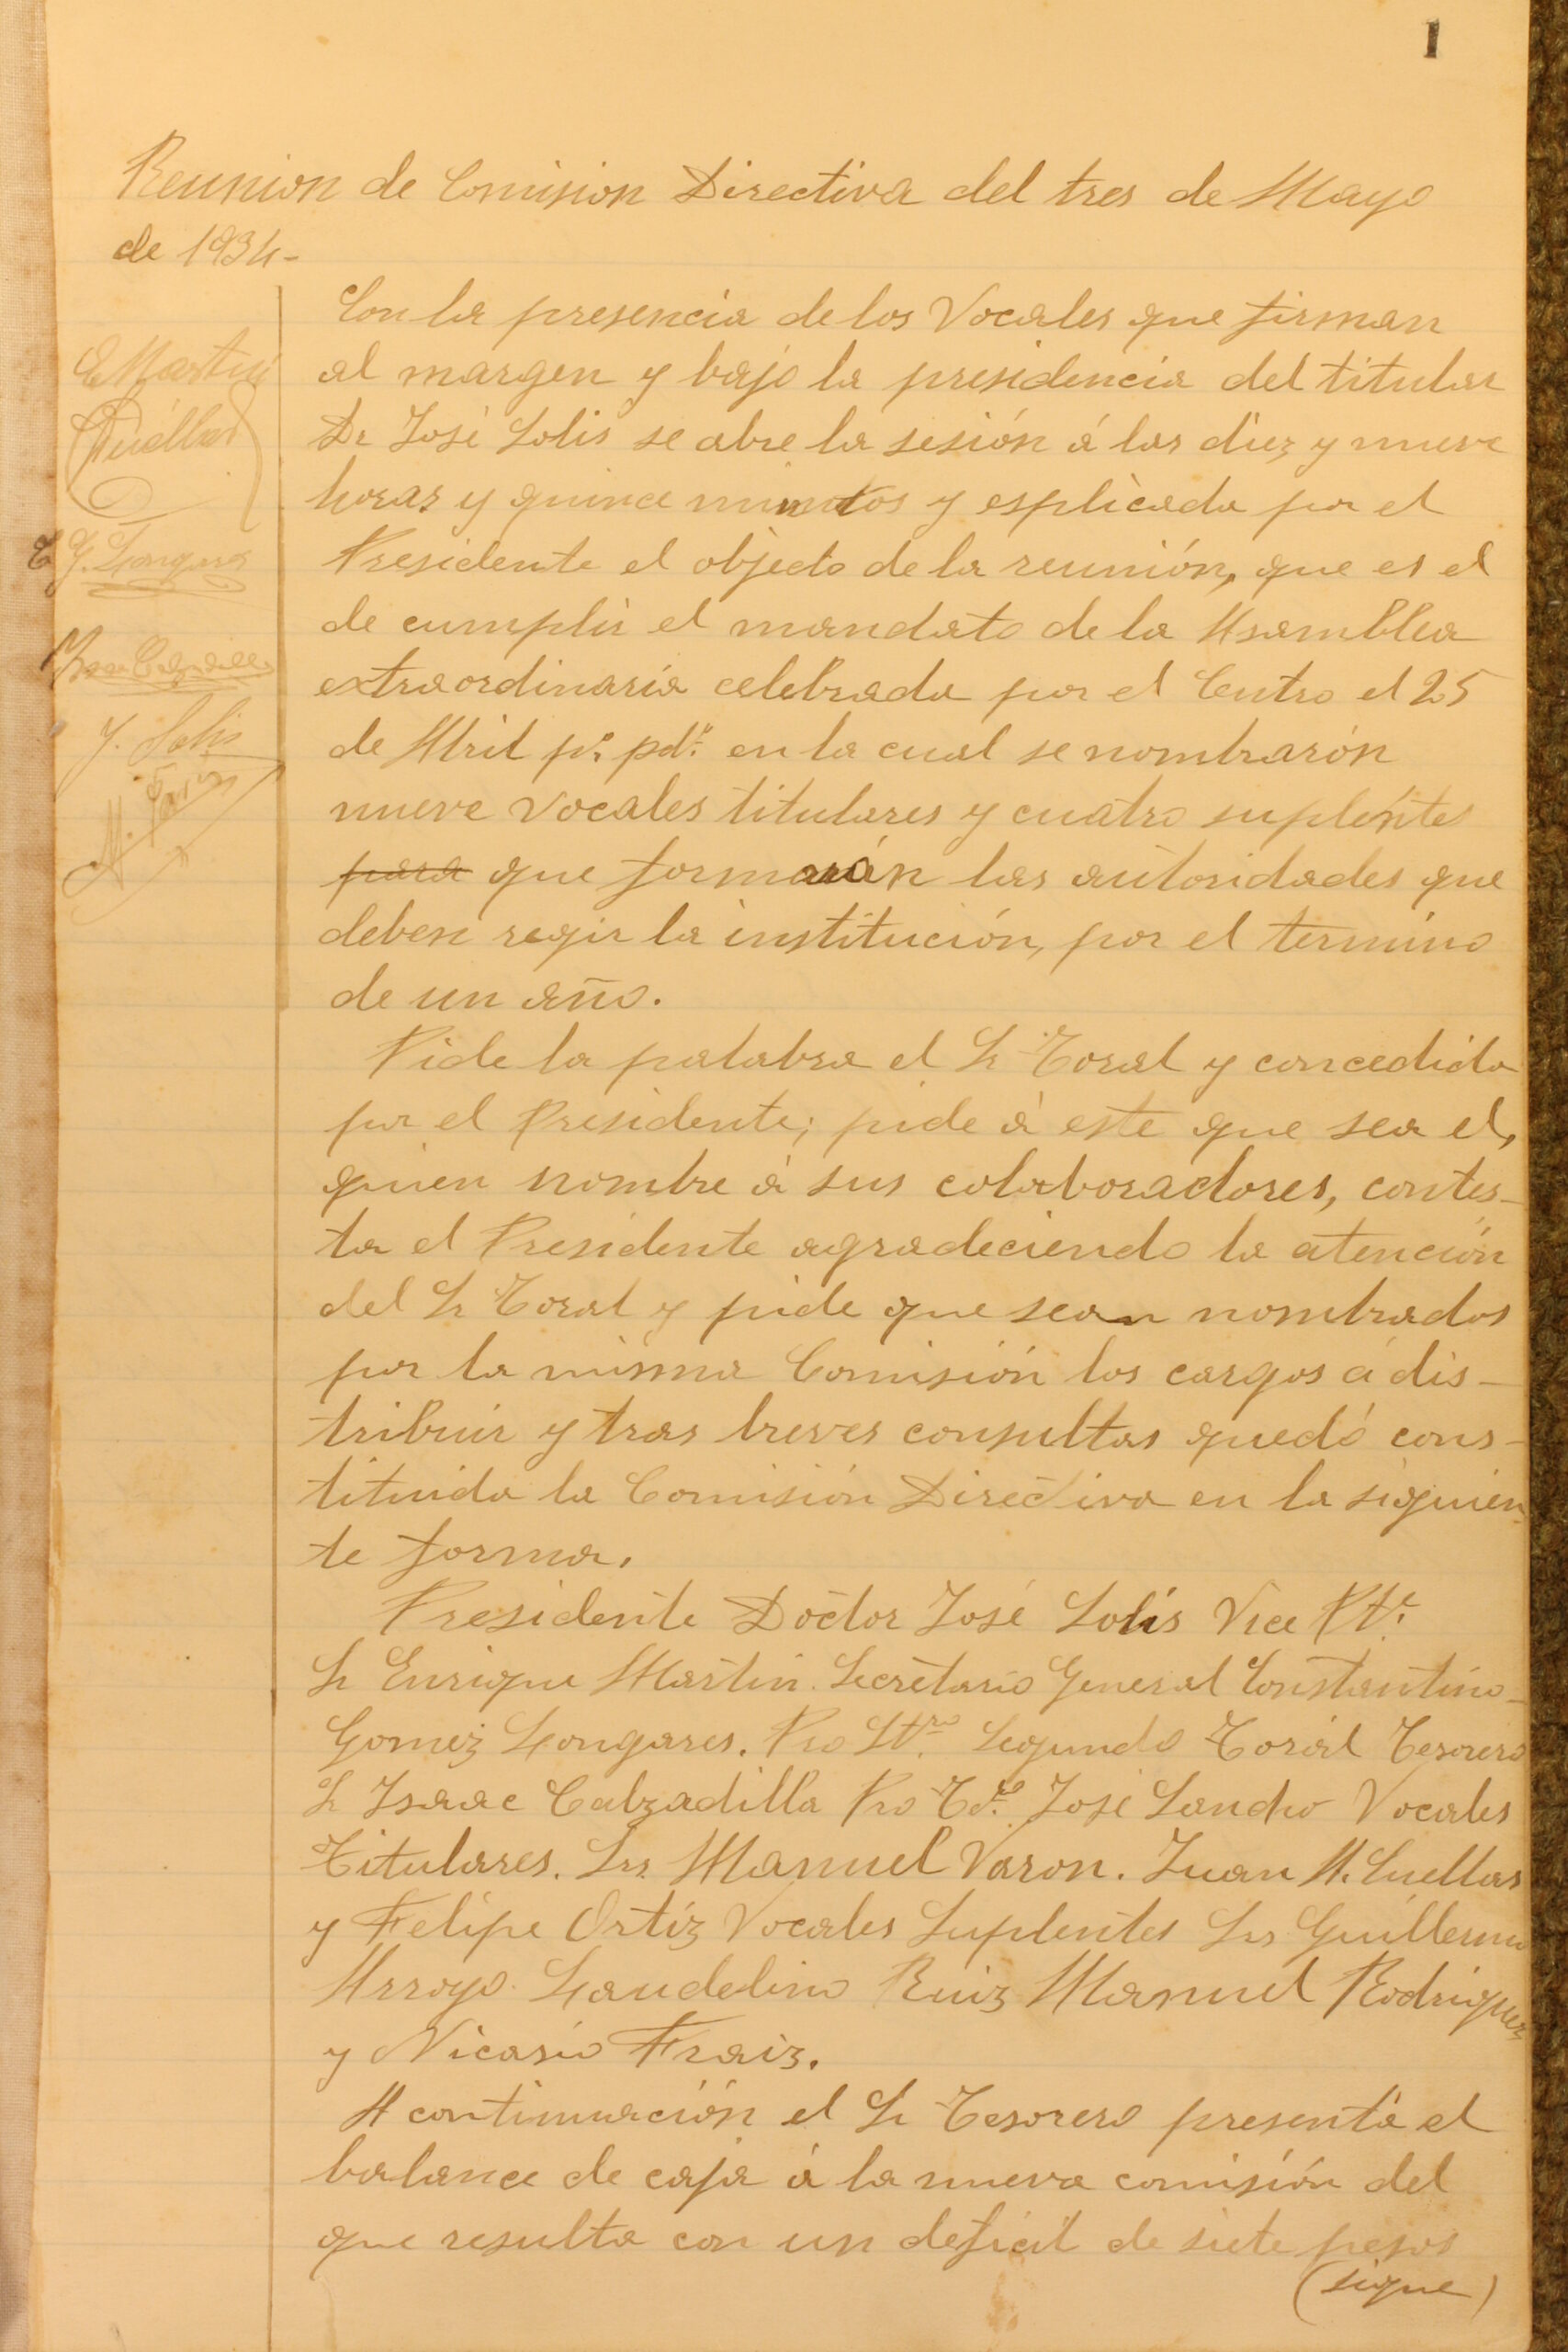 1
Reunion de Comision Directiva del tres de Mayo
de 1934-
Con la presencia de los Vocales que firman
al margen y bajo la presidencia del titular
Dr José Solis se abre la sesión á las diez y nueve
horas y quince minutos y esplicada por el
Presidente el objecto de la reunión, que es el
de cumplir el mandato de la Asamblea
extraordinaria celebrada por el Centro el 25
de Abril pº. pdº. en la cual se nombrarón
nueve vocales titulares y cuatro suplentes
para que formarán las autoridades que
deben regir la institución, por el termino
de un año.
Pide la palabra el Sr Toral y concedida
por el Presidente; pide á este que sea el,
quien nombre á sus colaboradores, contes-
ta el Presidente agradeciendo la atención
del Sr Toral y pide que sean nombrados
por la misma Comisión los cargos á dis-
tribuir y tras breves consultas quedó cons-
tituida la Comisión Directiva en la siguien
te forma.
Presidente Doctor José Solís Vice Pte.
Sr Enrique Martin. Secretario General Constantino
Gomez Longares. Pro Strº. Segundo Toral Tesorero
Sr Isaac Calzadilla Pro Tº. José Sancho Vocales
Titulares. Srs. Manuel Varon. Juan A. Cuellar
y Felipe Ortiz Vocales Suplentes Srs Guillermo
Arroyo. Laudelino Ruiz Manuel Rodriguez
y Nicasio Fraiz.
A continuación el Sr Tesorero presentá el
balance de caja á la nueva comisión del
que resulta con un deficit de siete pesos
(sigue)
E Martin
Cuellar
C. G. Longares
Isaac Calzadilla
J. Solis